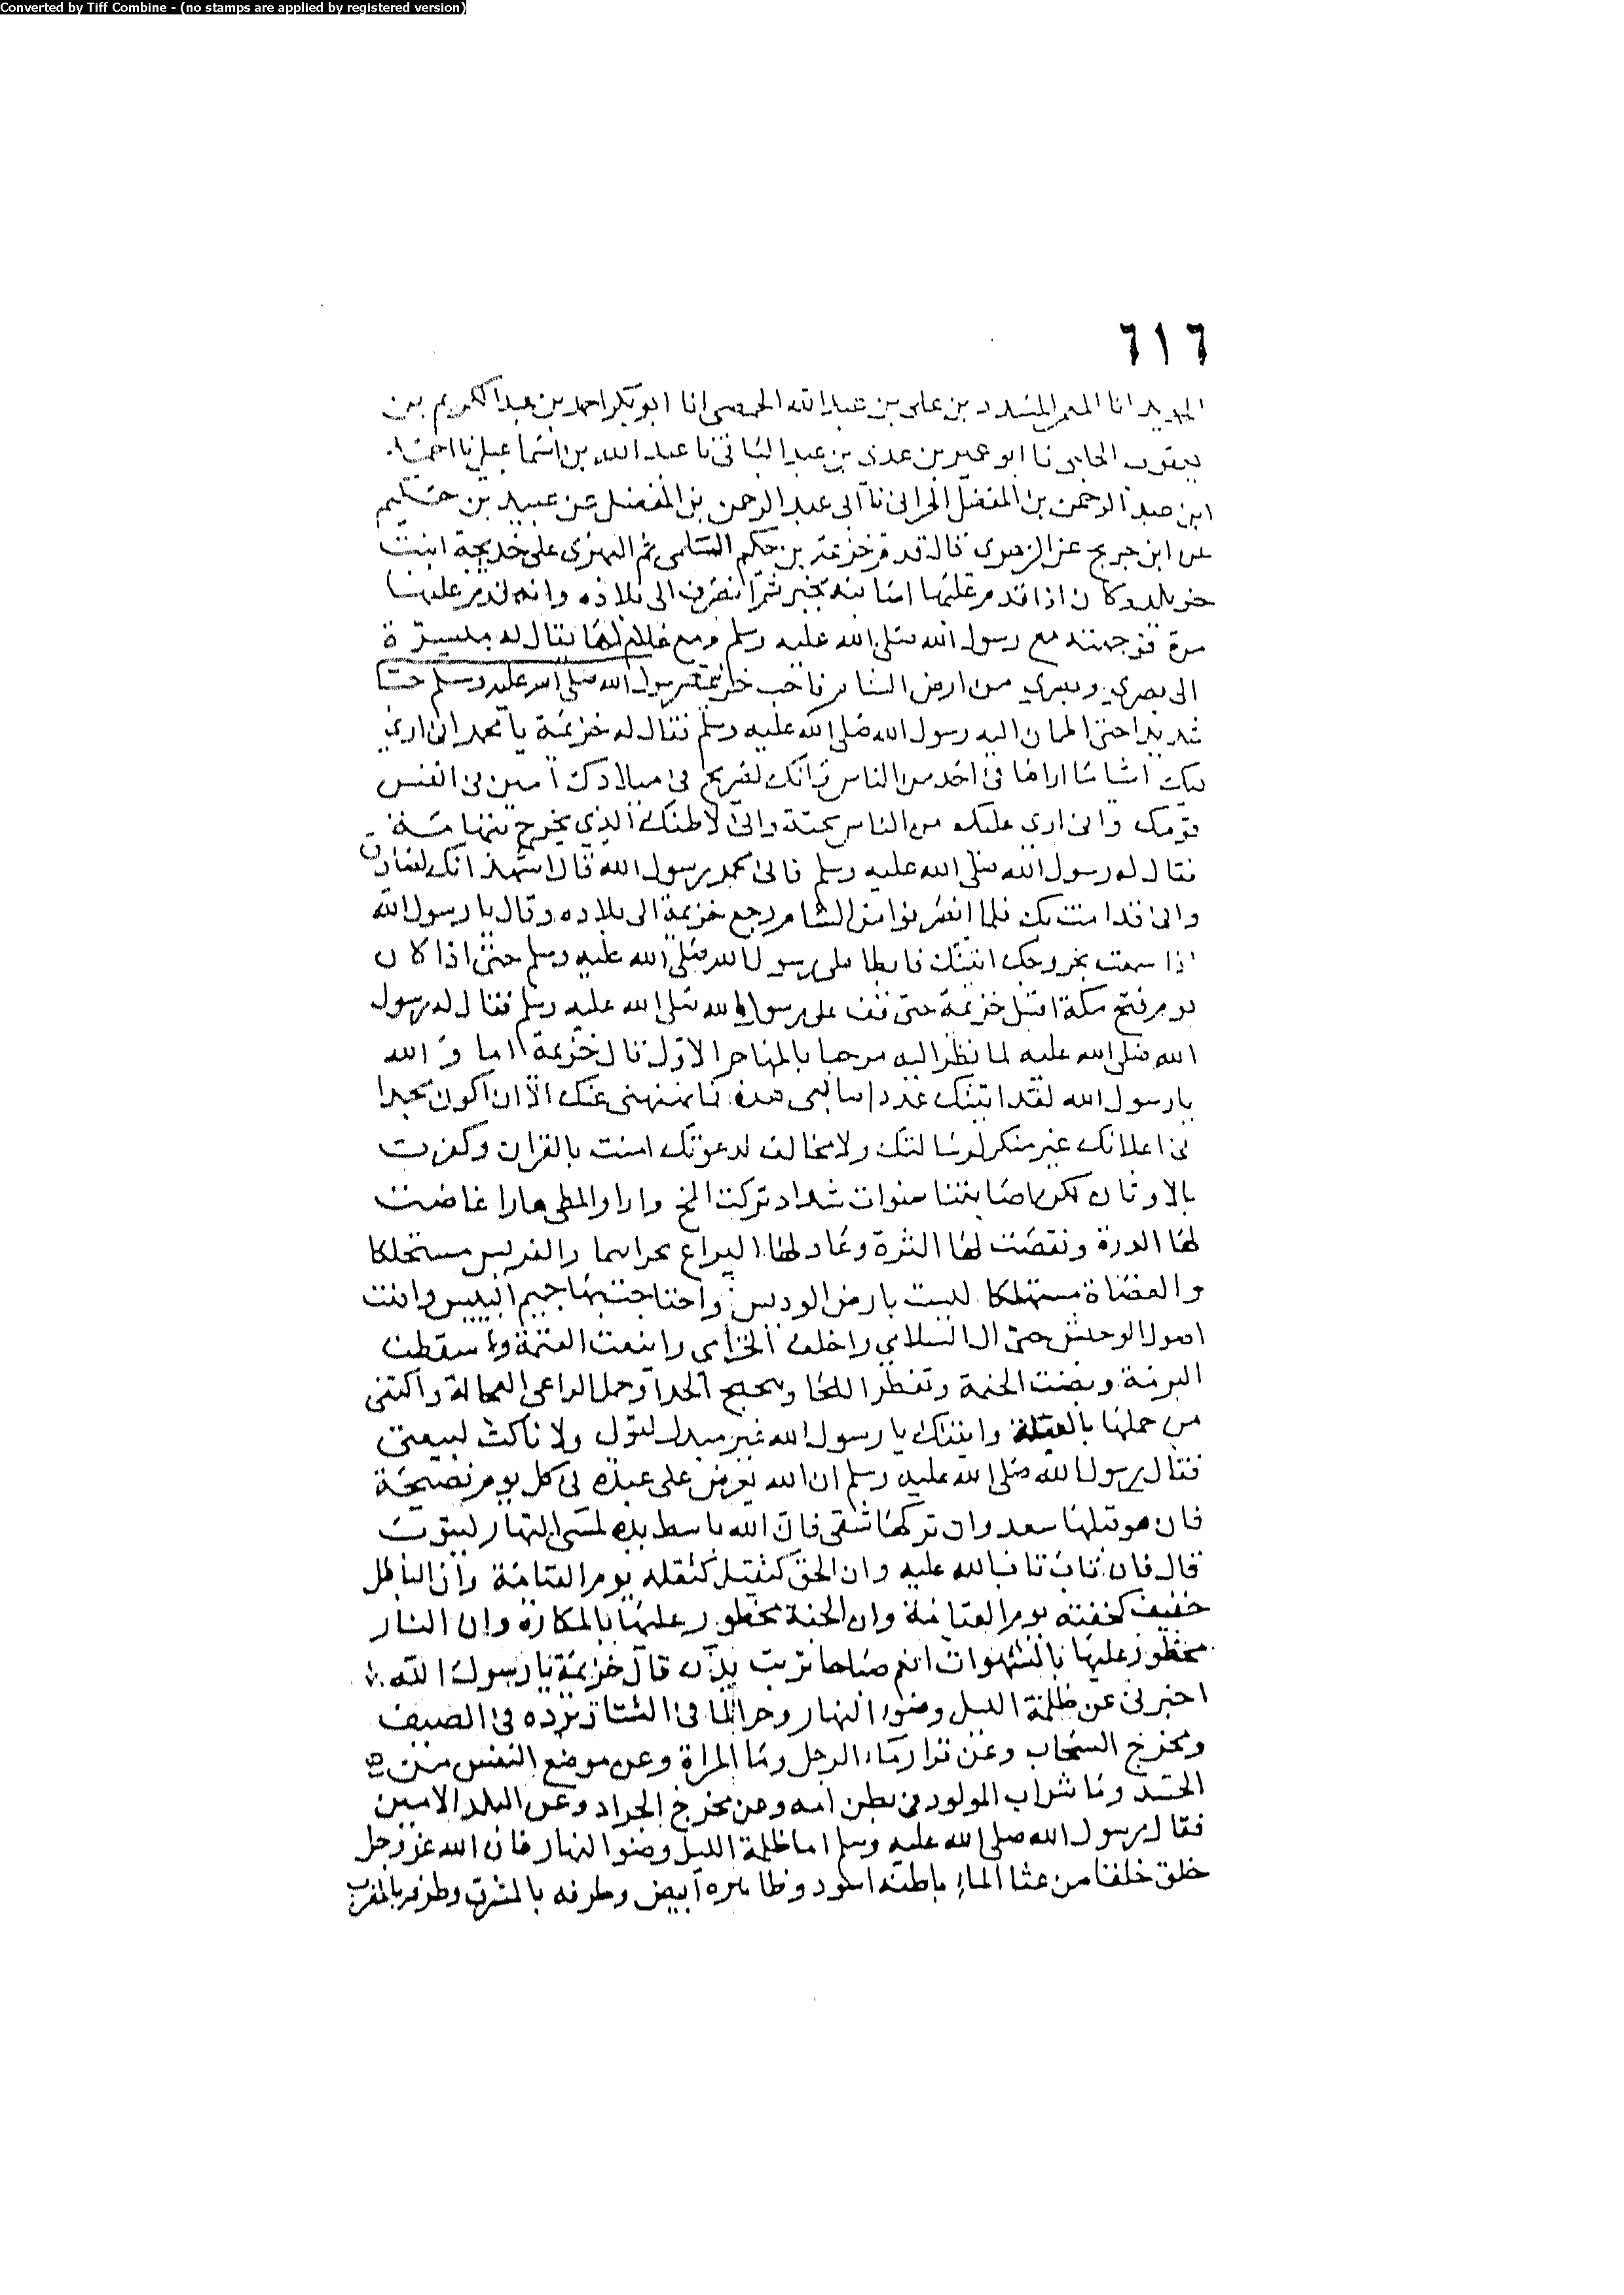 Converted by Tiff Combine - (no stamps are applied by registered version)
٦١٦
الحديد انا المسدد بن علي بن عبد الله الحمصي انا ابو بكر احمد بن عبد الكريم بن
يعقوب الحلبي نا ابو عمير بن عدي بن عبد الباقي نا عبد الله بن اسماعيل نا احمد
ابن عبد الرحمن بن المفضل الحراني نا ابي عبد الرحمن بن المفضل عن عبيد بن حكيم
عن ابن جريج عن الزهري قال قدم خزيمة بن حكيم السلمي ثم البهزي على خديجة ابنت
خويلد وكان اذا قدم عليها اصابته بخير ثم انصرف الى بلاده وانه قدم عليها
مرة فوجهته مع رسول الله صلى الله عليه وسلم ومع غلام لها يقال له ميسرة
الى بصرى وبصرى من ارض الشام فاحب خزيمة رسول الله صلى الله عليه وسلم حبا
شديدا حتى اطمان اليه رسول الله صلى الله عليه وسلم فقال له خزيمة يا محمد اني ارى
فيك اشيا ما اراها في احد من الناس وانك لصريح في ميلادك امين في انفس
قومك واني ارى عليك من الناس محبة واني لاظنك الذي يخرج بتهامة
فقال له رسول الله صلى الله عليه وسلم فاني محمد رسول الله قال اشهد انك لصادق
واني قد امنت بك فلما انصرفوا من الشام رجع خزيمة الى بلاده وقال يا رسول الله
اذا سمعت بخروجك اتيتك فابطا على رسول الله صلى الله عليه وسلم حتى اذا كان
يوم فتح مكة اقبل خزيمة حتى وقف على رسول الله صلى الله عليه وسلم فقال له رسول
الله صلى الله عليه لما نظر اليه مرحبا بالمهاجر الاول قال خزيمة اما والله
يا رسول الله لقد اتيتك عدد اصابعي هذه فما نهنهني عنك الا ان اكون مجدا
في اعلانك غير منكر لرسالتك ولا مخالف لدعوتك امنت بالقران وكفرت
بالاوثان لكن اصابتنا سنوات شداد تركت المخ رارا والمطي هارا غاضت
لها الدرة ونقصت لها الثرة وعاد لها اليراع مجرنثما والفريس مستحلكا
والعضاة مستهلكا ايبست بارض الوديس واجتاحت بها جميم اليبيس وافنت
اصول الوحشي حتى ال السلامى واخلف الخزامى واينعت العنمة واسقطت
البرمة وبضت الحنمة وتفطر اللحا وبحبح الجدا وحمل الراعي العجالة واكتفى
من حملها بالقيلة واتيتك يا رسول الله غير مبدل لقول ولا ناكث لبيعتي
فقال رسول الله صلى الله عليه وسلم ان الله يعرض على عبده في كل يوم نصيحة
فان هو قبلها سعد وان تركها شقي فان الله باسط يده لمسي النهار ليتوب
قال فان تاب تاب الله عليه وان الحق ثقيل كثقله يوم القيامة وان الباطل
خفيف كخفته يوم القيامة وان الجنة محظور عليها بالمكاره وان النار
محظور عليها بالشهوات انعم صباحا تربت يداك قال خزيمة يا رسول الله
اخبرني عن ظلمة الليل وضوء النهار وحر الما في الشتا وبرده في الصيف
ومخرج السحاب وعن قرار ماء الرجل وما المراة وعن موضع النفس من
الجسد وما شراب المولود في بطن امه وعن مخرج الجراد وعن البلد الامين
فقال رسول الله صلى الله عليه وسلم اما ظلمة الليل وضوء النهار فان الله عز وجل
خلق خلقا من غثا الماء باطنه اسود وظاهره ابيض وطرفه بالمشرق وطرفه بالمغرب